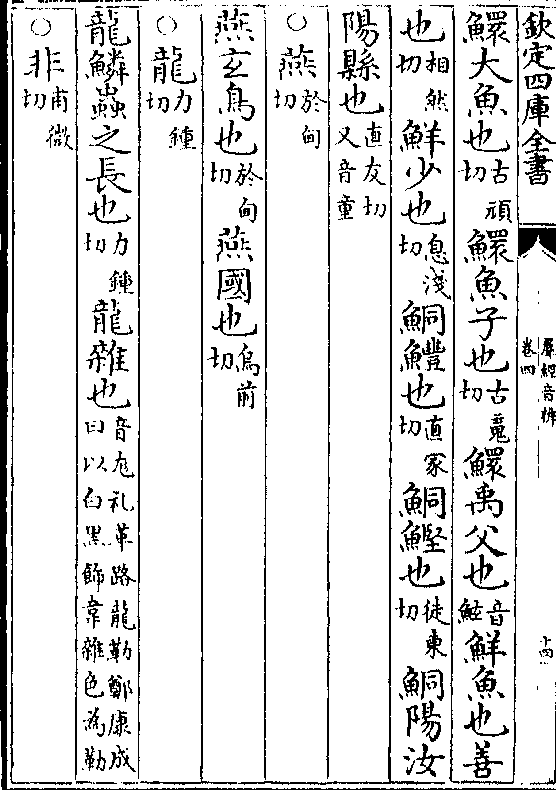 欽定四庫全書
羣經音辨
卷四
十四
鰥大魚也古頑切鰥魚子也古䰟切鰥禹父也音鮌鮮魚也善
也相然切鮮少也息淺切鮦鱧也直冢切鮦鰹也徒東切鮦陽汝
陽縣也直友切又音童
○燕於甸切
燕玄鳥也於甸切燕國也烏前切
○龍力鍾切
龍鱗蟲之長也力鍾切龍雜也音尨礼革路龍勒鄭康成曰以白黑飾韋雜色為勒
○非甫微切